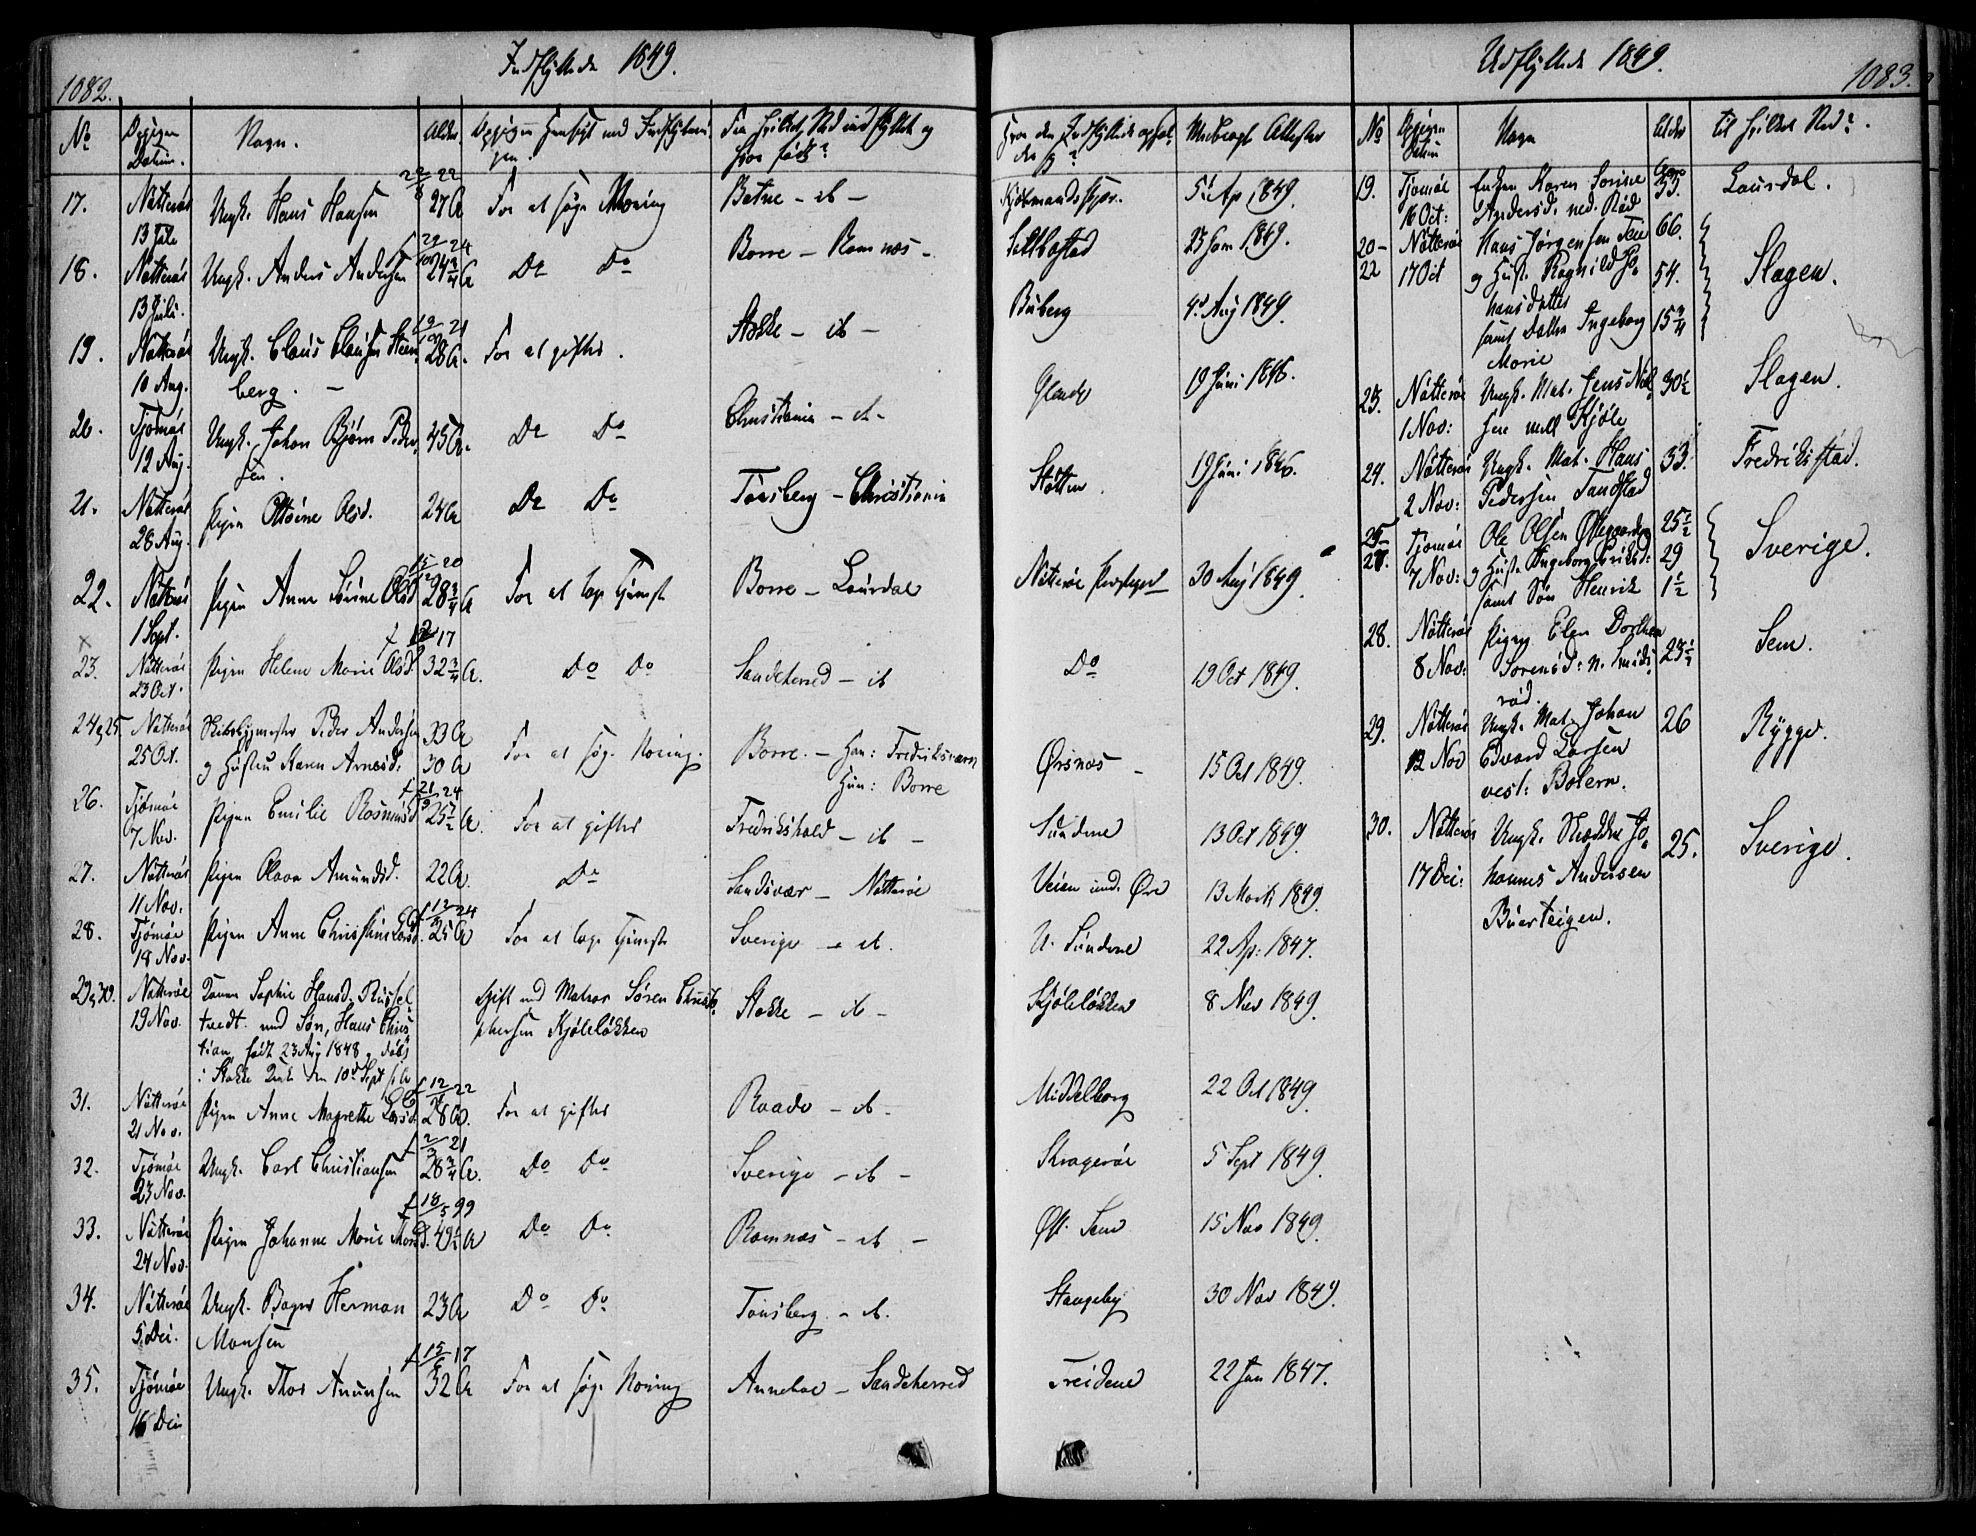 1082.
Indflyttede 1849.
No Opgiven Datum. Navn. Alder Opgiven Hensigt med Indflytnin-
gen. Fra hvilket Sted indflyttet og
hvor født?
Hvor den Indflyttede opholder sig? Medbragt Attester
17. Nøtterøe 13 Juli Ungk. Hans Hansen 27 A For at søge Næring Botne - ib - Kjøbmandskjær. 5te Ap 1849.
18. Nøtterøe 13 Juli. Ungk. Anders Andersen f 24 3/4 A Do Do Borre - Ramnæs - 23 1849.
19. Nøtterøe 10 Aug. Ungk. Claus Clausen Steen-
berg. - 28 A. For at giftes. Stokke - ib - Buberg 4de Aug 1849.
20. Tjømøe 12 Aug. Ungk. Johan Bjørn Peder-
sen. 45 A. Do Do Christiania - ib - Glende 19 Juni 1846.
21. Nøtterøe 28 Aug. Pigen Olsd. 24 A Do Do Tønsberg - Christiania Støtten 19 Juni 1846.
22. Nøtterøe 1 Sept. Pigen Anne Sørine Olsd 28 3/4 A For at tage Tjeneste Borre - Laurdal Nøtterøe Præstegd 30 Aug 1849.
23. Nøtterøe 23 Oct. Pigen Helene Marie Olsd 32 3/4 A. Do Do Sandeherred - ib Do 19 Oct 1849.
24 & 25. Nøtterøe 25 Oct. Skibsbygmester Peder Andersen 33 A
og Hustru Karen Arnesd. 30 A For at søge Næring. Borre. - Han: Fredriksværn
Hun: Borre Ørsnæs - 15 Oct 1849.
26. Tjømøe 7 Nov. Pigen Emilie Rasmusd 25 1/2 A. For at giftes Fredrikshald - ib - Sundene 13 Oct 1849.
27. Nøtterøe 11 Nov. Pigen Olava Amundsd. 22 A. Do Sandsvær - Nøtterøe Veien und. Øre 13 Marts 1849.
28. Tjømøe 18 Nov. Pigen Anne Christine Larsd. 25 A For at tage Tjeneste Sverige - ib. U. Sundene 22 Ap: 1847.
29 & 30. Nøtterøe 19 Nov. Sophie Hansd. Russel-
tvedt. med Søn, Hans Chris-
tian, født 23 Aug 1848 & døbt
i Stokke Kirke den 10de Sept s. A. Gift med Matros Søren Christo-
phersen Kjøleløkken Stokke - ib - Kjøleløkken 8 Nov 1849.
31. Nøtterøe 21 Nov. Pigen Anne Magrethe Larsd. 28 A. For at giftes Raade - ib. Middelborg 22 Oct 1849.
32. Tjømøe 23 Nov. Ungk. Carl Christiansen 28 3/4 A. Do Do Sverige - ib - Kragerøe 5 Sept 1849.
33. Nøtterøe 24 Nov. Pigen Johanne Marie 49 1/2 A Do Do Ramnæs - ib - Øst. Sem 15 Nov 1849.
34. Nøtterøe 5 Dec. Ungk. Bager Herman
Monsen 23 A Do Do Tønsberg. - ib. Stangeby 30 Nov 1849.
35. Tjømøe 16 Dec Ungk. Thor Anunsen 32 A For at søge Næring Anneboe - Sandeherred Treidene 22 Jan 1847.
Udflyttede 1849.
1083.
No Opgiven Datum Navn Alder til hvilket Sted?
19. Tjømøe 16 Oct: Enken Karen Sørine
Andersd. ned. Rød 53. Laurdal.
20-22 Nøtterøe 17 Oct Hans Jørgensen 66.
og Hust. Ragnild Jo-
hansdatter 54.
samt Datter Ingeborg
Marie 15 3/4 Slagen.
23. Nøtterøe 1 Nov: Ungk. Mat. Jens Niel-
sen mell Kjøle 30 1/2 Slagen.
24. Nøtterøe 2 Nov: Ungk. Mat. Hans
Pedersen 33. Fredrikstad.
25-27. Tjømøe 7 Nov: Ole Olsen 25 1/2
og Hust. Ingeborg 29
samt Søn Henrik 1 1/2 Sverige.
28. Nøtterøe 8 Nov: Pigen Elen Dorthea
Sørensd: n. Smids-
rød. 23 1/2 Sem.
29. Nøtterøe 12 Nov Ungk. Mat. Johan
Edvard Larsen
vest: Bolern. 26 Rygge.
30. Nøtterøe 17 Dec: Ungk. Skrædder Jo-
hannes Andersen
Buerteigen. 25. Sverige.